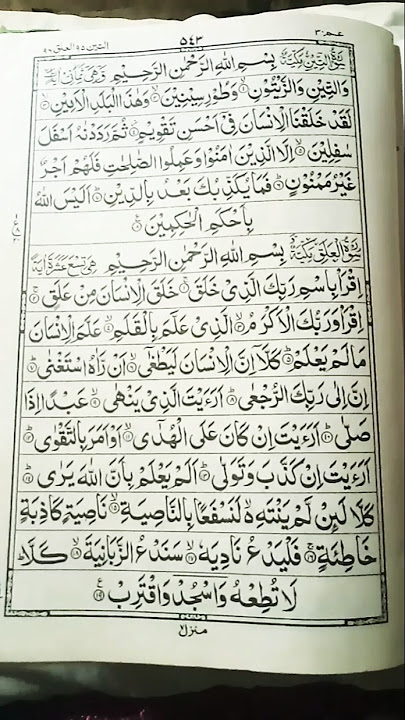 عم ٣٠ ٥٤٣ التين ٩٥ العلق ٩٦
سُوْرَةُ التِّيْنِ مَكِّيَّةٌ بِسْمِ اللّٰهِ الرَّحْمٰنِ الرَّحِيْمِ وَهِيَ ثَمَانِيْ اٰيَاتٍ
وَالتِّيْنِ وَالزَّيْتُوْنِ ۙ۱ وَطُوْرِ سِيْنِيْنَ ۙ۲ وَهٰذَا الْبَلَدِ الْاَمِيْنِ ۙ۳
لَقَدْ خَلَقْنَا الْاِنْسَانَ فِيْٓ اَحْسَنِ تَقْوِيْمٍ ۴ ثُمَّ رَدَدْنٰهُ اَسْفَلَ
سٰفِلِيْنَ ۙ۵ اِلَّا الَّذِيْنَ اٰمَنُوْا وَعَمِلُوا الصّٰلِحٰتِ فَلَهُمْ اَجْرٌ
غَيْرُ مَمْنُوْنٍ ۶ فَمَا يُكَذِّبُكَ بَعْدُ بِالدِّيْنِ ۷ اَلَيْسَ اللّٰهُ
بِاَحْكَمِ الْحٰكِمِيْنَ ۸
سُوْرَةُ الْعَلَقِ مَكِّيَّةٌ بِسْمِ اللّٰهِ الرَّحْمٰنِ الرَّحِيْمِ هِيَ تِسْعَ عَشْرَةَ اٰيَةً
اِقْرَاْ بِاسْمِ رَبِّكَ الَّذِيْ خَلَقَ ۱ خَلَقَ الْاِنْسَانَ مِنْ عَلَقٍ ۲
اِقْرَاْ وَرَبُّكَ الْاَكْرَمُ ۳ الَّذِيْ عَلَّمَ بِالْقَلَمِ ۴ عَلَّمَ الْاِنْسَانَ
مَا لَمْ يَعْلَمْ ۵ كَلَّآ اِنَّ الْاِنْسَانَ لَيَطْغٰٓى ۶ اَنْ رَّاٰهُ اسْتَغْنٰى ۷
اِنَّ اِلٰى رَبِّكَ الرُّجْعٰى ۸ اَرَءَيْتَ الَّذِيْ يَنْهٰى ۹ عَبْدًا اِذَا
صَلّٰى ۱۰ اَرَءَيْتَ اِنْ كَانَ عَلَى الْهُدٰٓى ۱۱ اَوْ اَمَرَ بِالتَّقْوٰى ۱۲
اَرَءَيْتَ اِنْ كَذَّبَ وَتَوَلّٰى ۱۳ اَلَمْ يَعْلَمْ بِاَنَّ اللّٰهَ يَرٰى ۱۴
كَلَّا لَئِنْ لَّمْ يَنْتَهِ لَنَسْفَعًۢا بِالنَّاصِيَةِ ۱۵ نَاصِيَةٍ كَاذِبَةٍ
خَاطِئَةٍ ۱۶ فَلْيَدْعُ نَادِيَهٗ ۱۷ سَنَدْعُ الزَّبَانِيَةَ ۱۸ كَلَّا
لَا تُطِعْهُ وَاسْجُدْ وَاقْتَرِبْ ۱۹
منزل ٧